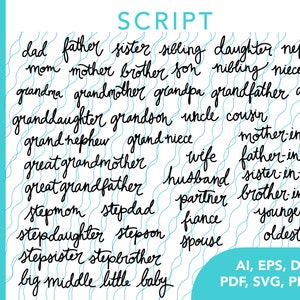 SCRIPT
dad father sister sibling daughter
mom mother brother son nibling niece
grandma grandmother grandpa grandfather
granddaughter grandson uncle cousin
grandnephew grandniece mother-in
great grandmother wife father-in
great grandfather husband sister-in
partner brother-in
stepmom stepdad fiance
stepdaughter stepson spouse oldest
stepsister stepbrother
big middle little baby
AI, EPS, D
PDF, SVG, P